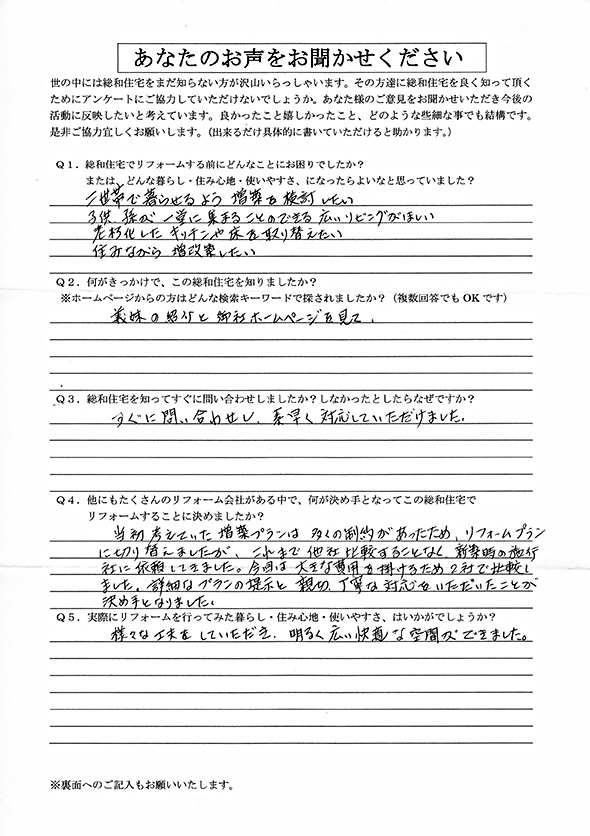 あなたのお声をお聞かせください
世の中には総和住宅をまだ知らない方が沢山いらっしゃいます。その方達に総和住宅を良く知って頂く
ためにアンケートにご協力していただけないでしょうか。あなた様のご意見をお聞かせいただき今後の
活動に反映したいと考えています。良かったこと嬉しかったこと、どのような些細な事でも結構です。
是非ご協力宜しくお願いします。（出来るだけ具体的に書いていただけると助かります。）
Q１．総和住宅でリフォームする前にどんなことにお困りでしたか？
または、どんな暮らし・住み心地・使いやすさ、になったらよいなと思っていました？
二世帯で暮らせるよう 増築を検討したい
子供、孫が一堂に集まることのできる広いリビングがほしい
老朽化した キッチンや床を取り替えたい
住みながら 増改築したい
Q２．何がきっかけで、この総和住宅を知りましたか？
※ホームページからの方はどんな検索キーワードで探されましたか？（複数回答でもOKです）
義妹の紹介と御社ホームページを見て、
Q３．総和住宅を知ってすぐに問い合わせしましたか？しなかったとしたらなぜですか？
すぐに問い合わせし、素早く対応していただけました。
Q４．他にもたくさんのリフォーム会社がある中で、何が決め手となってこの総和住宅で
リフォームすることに決めましたか？
当初考えていた増築プランは 多くの制約があったため、リフォームプラン
に切り替えましたが、これまで他社比較することなく 新築時の施行
社に依頼してきました。今回は大きな費用を掛けるため2社で比較し
ました。詳細なプランの提示と 親切、丁寧な対応をいただいたことが
決め手となりました。
Q５．実際にリフォームを行ってみた暮らし・住み心地・使いやすさ、はいかがでしょうか？
様々な工夫をしていただき、明るく広い快適な空間ができました。
※裏面へのご記入もお願いいたします。